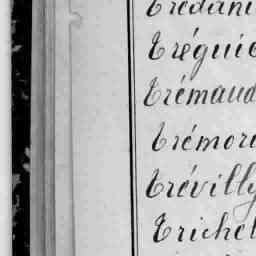 Trédani
Tréguie
Trémaud
Trémore
Trévilly
Trichel